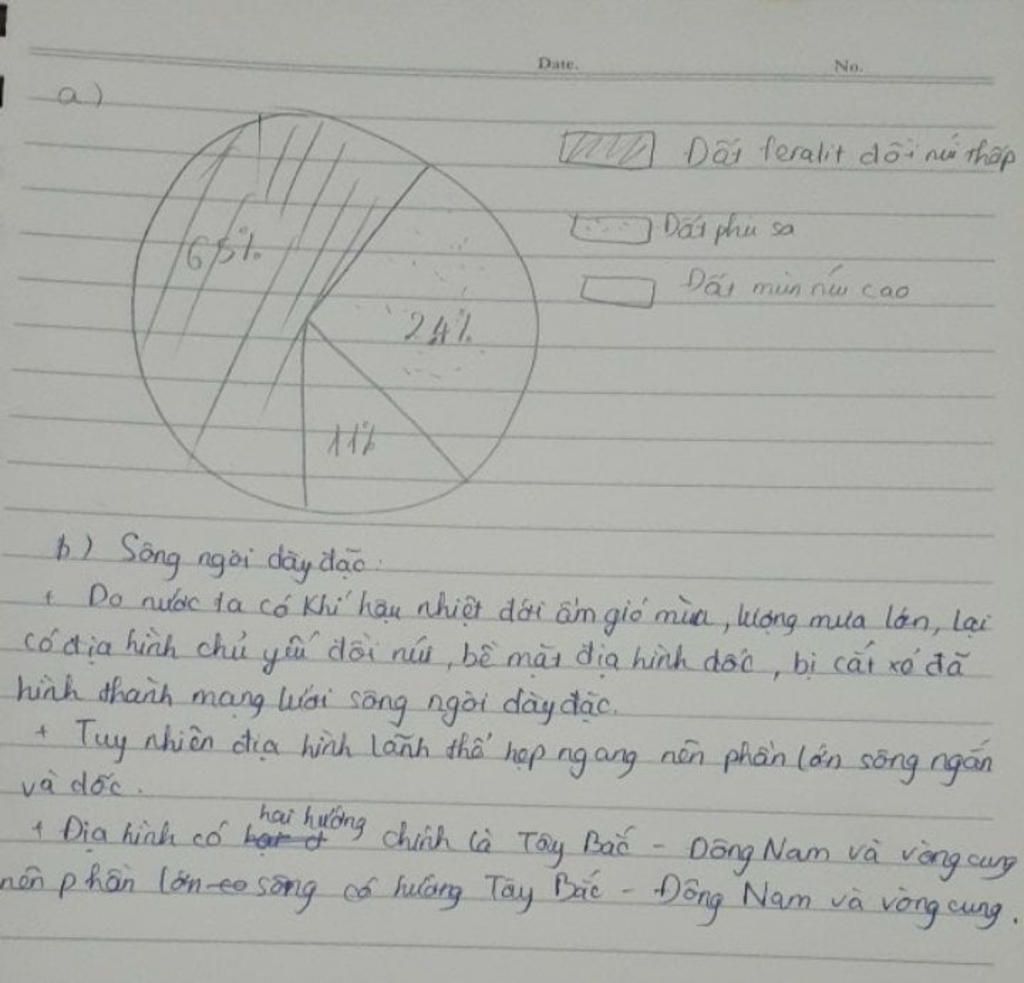 Date. No.
a)
Đất feralit đồi núi thấp
65%
Đất phù sa
Đất mùn núi cao
24%
11%
b) Sông ngòi dày đặc:
+ Do nước ta có khí hậu nhiệt đới ẩm gió mùa, lượng mưa lớn, lại
có địa hình chủ yếu đồi núi, bề mặt địa hình dốc, bị cắt xẻ đã
hình thành mạng lưới sông ngòi dày đặc.
+ Tuy nhiên địa hình lãnh thổ hẹp ngang nên phần lớn sông ngắn
và dốc.
+ Địa hình có hai hướng chính là Tây Bắc - Đông Nam và vòng cung
nên phần lớn sông có hướng Tây Bắc - Đông Nam và vòng cung.